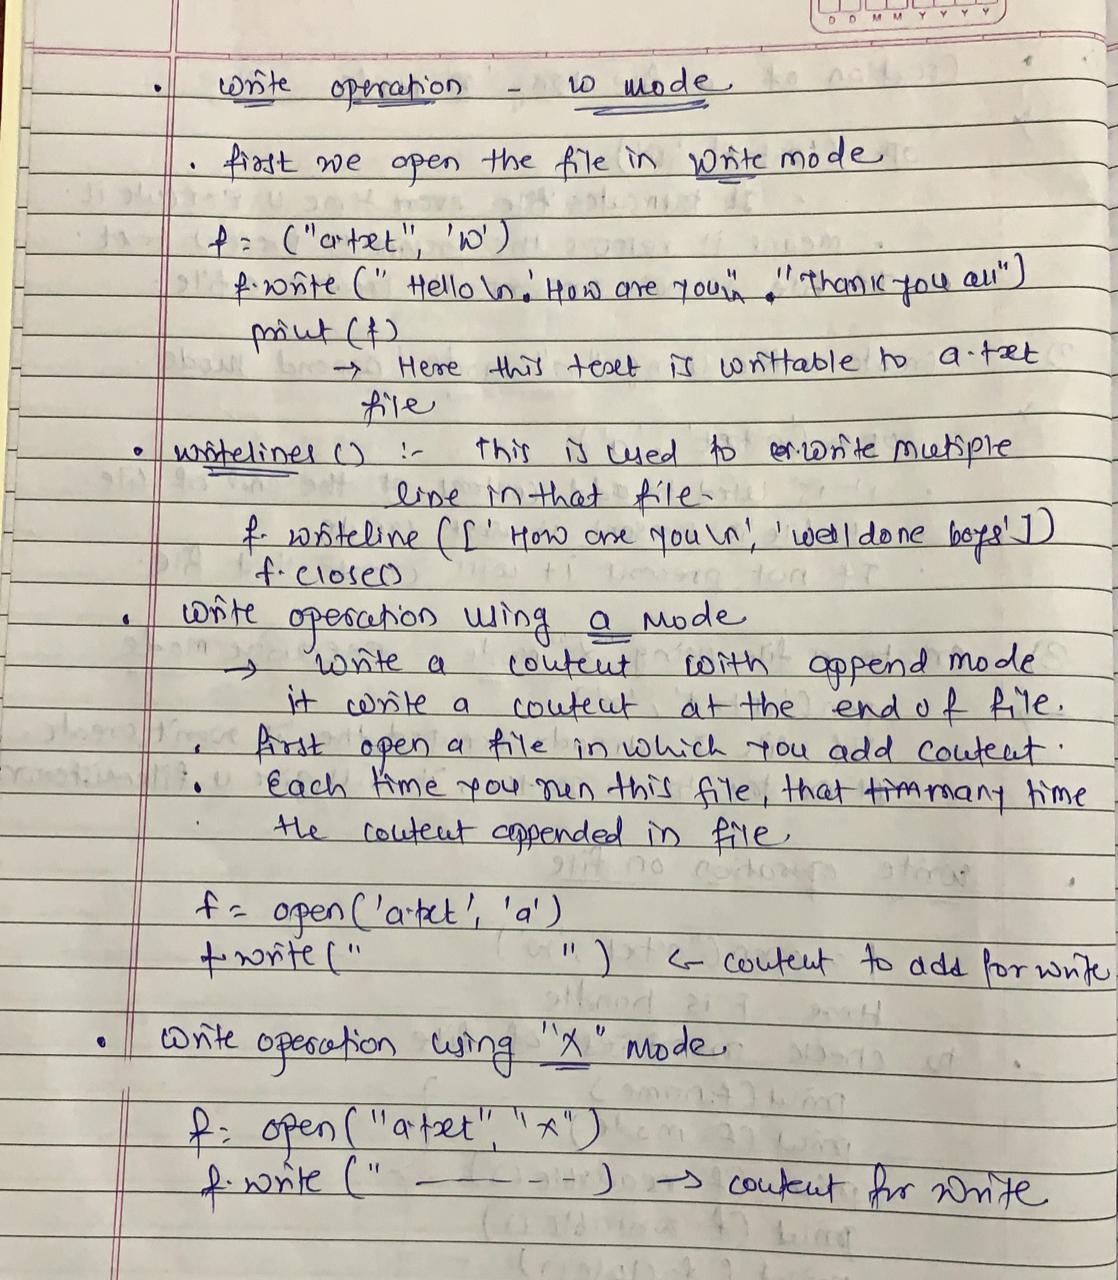 D D M M Y Y Y Y
• write operation - w mode
• first we open the file in write mode
f = ("a.txt", 'w')
f.write (" Hello \n. How are you\n" . "Thank you all")
print (f)
→ Here this text is writtable to a.txt
file
• writelines () :- This is used to write multiple
line in that file.
f. writeline (['How are you \n', 'well done boys'])
f.close()
• write operation using a mode
→ write a content with append mode
it write a content at the end of file.
• first open a file in which you add content.
• Each time you run this file, that many time
the content appended in file
f = open('a.txt', 'a')
f.write (" ") ← content to add for write
• write operation using "x" mode
f = open ("a.txt", "x")
f. write (" - - - - - ) → content for write